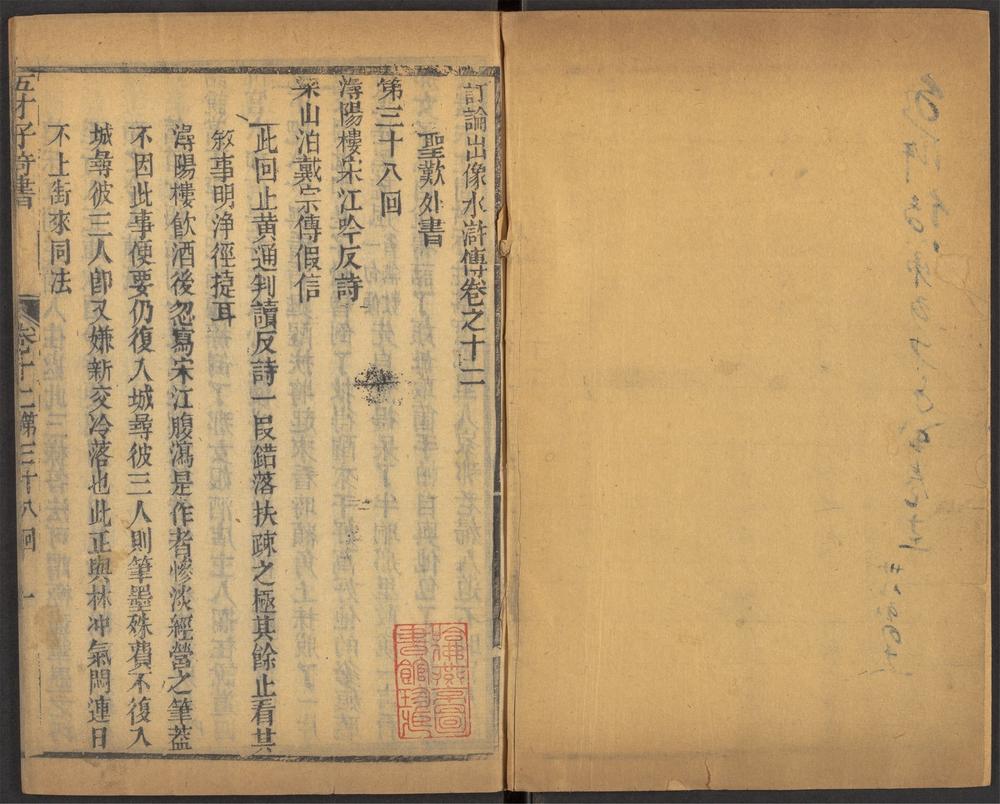 訂論出像水滸傳卷之十二
聖歎外書
第三十八回
潯陽樓宋江吟反詩
梁山泊戴宗傳假信
此回止黄通判讀反詩一段錯落扶疎之極其餘止看其
敘事明淨徑捷耳
潯陽樓飲酒後忽寫宋江腹瀉是作者慘淡經營之筆葢
不因此事便要仍復入城尋彼三人則筆墨殊費不復入
城尋彼三人卽又嫌新交冷落也此正與林冲氣悶連日
不上街來同法
五才子奇書
卷十二第三十八回
一